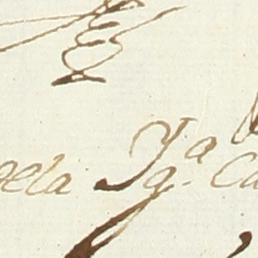 de la Yg.ª Ca